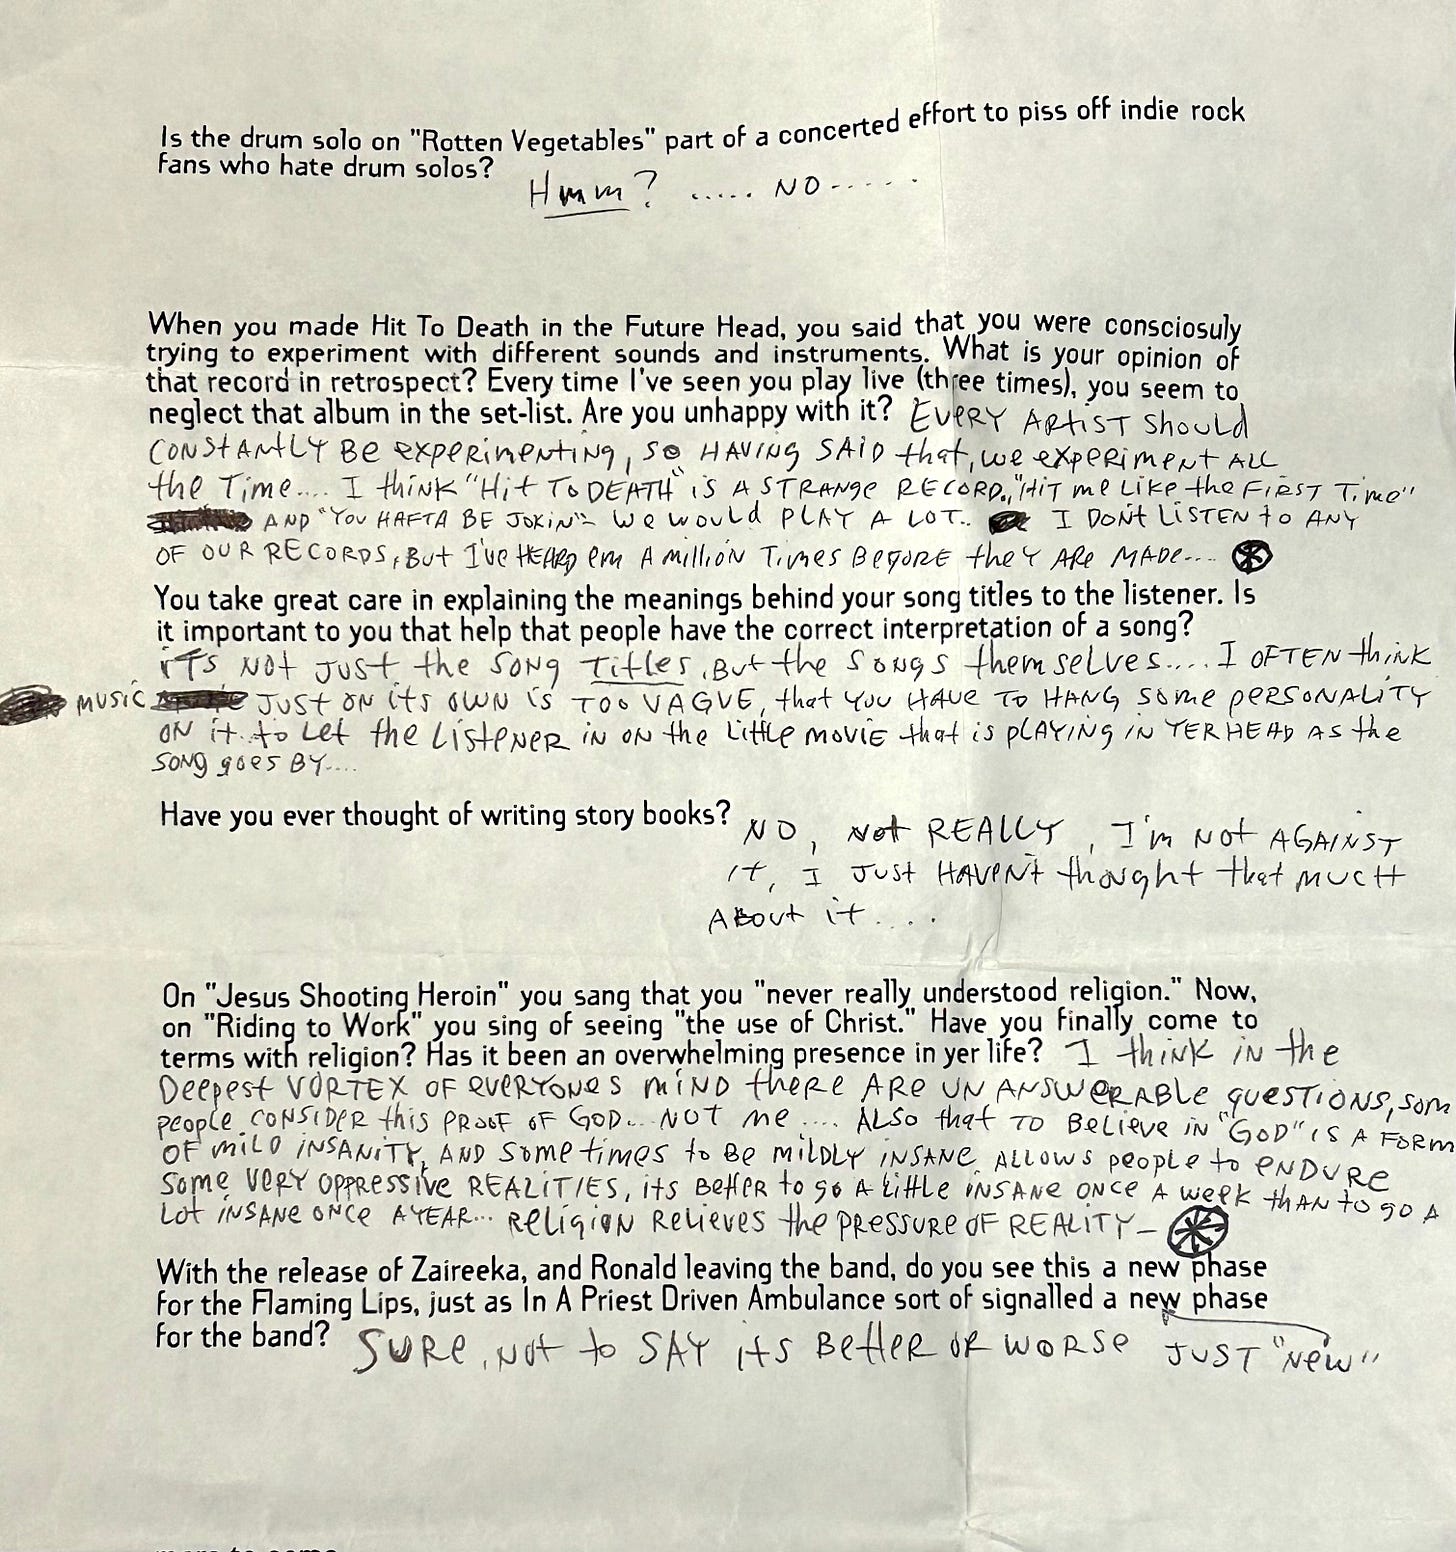 Is the drum solo on "Rotten Vegetables" part of a concerted effort to piss off indie rock
fans who hate drum solos?
Hmm? ..... NO.....
When you made Hit To Death in the Future Head, you said that you were consciosuly
trying to experiment with different sounds and instruments. What is your opinion of
that record in retrospect? Every time I've seen you play live (three times), you seem to
neglect that album in the set-list. Are you unhappy with it? EVERY ARTIST SHOULD
CONSTANTLY BE EXPERIMENTING, SO HAVING SAID that, we EXPERIMENT ALL
the Time.... I think "Hit TO DEATH" is A STRANGE RECORD., "HIT me LIKE the FIRST Time"
AND "YOU HAFTA BE JOKIN"- WE WOULD PLAY A LOT.. I DON'T LISTEN to ANY
OF OUR RECORDS, BUT I'VE HEARD em A million Times BEFORE they ARE MADE....
You take great care in explaining the meanings behind your song titles to the listener. Is
it important to you that help that people have the correct interpretation of a song?
iTS NOT JUST the SONG TITLES, BUT the SONGS themselves.... I OFTEN think
MUSIC JUST ON iTS OWN iS TOO VAGUE, that YOU HAVE TO HANG SOME PERSONALITY
ON it to Let the LISTENER IN ON the LITTLE MOVIE that is PLAYING IN YER HEAD AS the
SONG goes BY....
Have you ever thought of writing story books? NO, NOT REALLY, I'm NOT AGAINST
it, I JUST HAVEN'T thought that MUCH
ABOUT it....
On "Jesus Shooting Heroin" you sang that you "never really understood religion." Now,
on "Riding to Work" you sing of seeing "the use of Christ." Have you finally come to
terms with religion? Has it been an overwhelming presence in yer life? I think IN the
Deepest VORTEX OF EVERYONES MIND there ARE UNANSWERABLE QUESTIONS, SOM
people CONSIDER this PROOF OF GOD... NOT me.... ALSO that TO BELIEVE IN "GOD" IS A FORM
OF MILD INSANITY, AND SOMEtimes to BE MILDLY INSANE ALLOWS people to ENDURE
SOME VERY OPPRESSIVE REALITIES, its BETTER to go A LITTLE INSANE ONCE A WEEK THAN TO GO A
LOT INSANE ONCE A YEAR... RELIGION RELIEVES the PRESSURE OF REALITY—
With the release of Zaireeka, and Ronald leaving the band, do you see this a new phase
for the Flaming Lips, just as In A Priest Driven Ambulance sort of signalled a new phase
for the band? SURE, NOT to SAY its BETTER OR WORSE JUST "NEW"